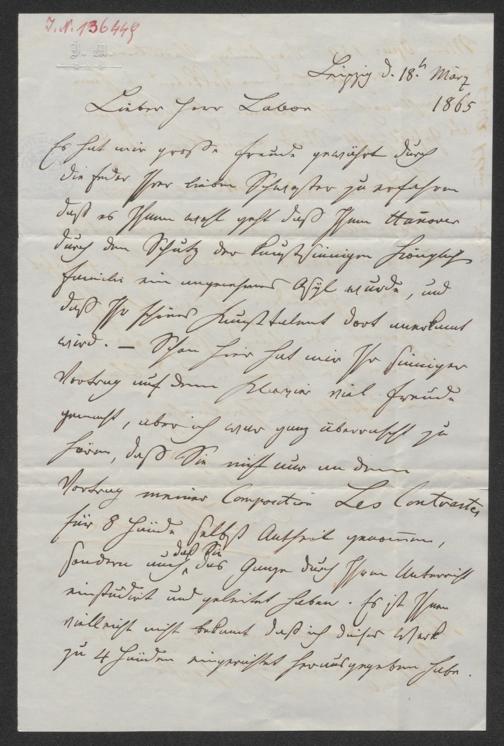 J.N. 136449
J. M.
Leipzig d. 18t. März
1865
Lieber Herr Labor
Es hat mir große Freude gewährt durch
die Feder Ihrer lieben Schwester zu erfahren
daß es Ihnen wohl geht daß Ihnen Hannover
durch den Schutz der kunstsinnigen Königlich
Familie ein angenehmes Asyl wurde, und
daß Ihr schönes Kunsttalent dort anerkannt
wird. – Schon hier hat mir Ihr sinniger
Vortrag auf dem Klavier viel Freude
gemacht, aber ich war ganz überrascht zu
hören, daß Sie nicht nur an dem
Vortrag meiner Composition Les Contrastes
für 8 Hände selbst Antheil genommen,
sondern auch daß Sie das Ganze durch Ihren Unterricht
einstudirt und geleitet haben. Es ist Ihnen
vielleicht nicht bekannt daß ich dieses Werk
zu 4 Händen eingerichtet herausgegeben habe.